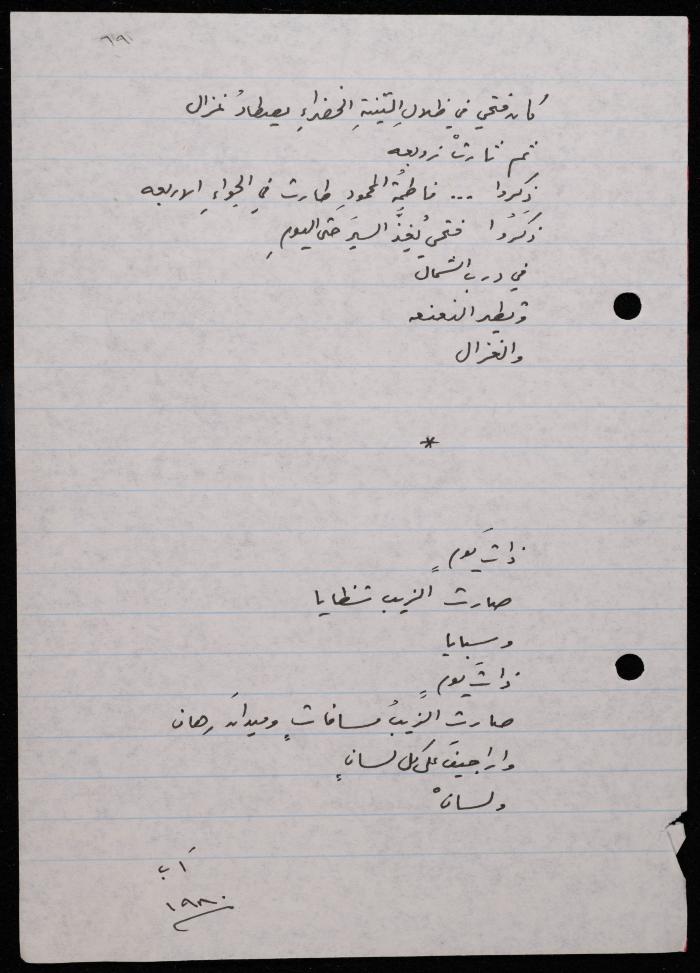 ٦٩
كان فتحي في ظلالِ التّينةِ الخضراءِ يصطادُ غزال
ثم ثارتْ زوبعه
ذَكِروا ... فاطمةُ المحمودِ طارت في الجواءِ الاربعه
ذَكَروا فتحي يُغِذُّ السيرَ حتى اليومِ
في درب الشمال
وتطير الزوبعه
والغزال
*
ذاتَ يَومٍ
صارت الزيب شظايا
وسبايا
ذاتَ يومٍ
صارت الزيبُ مسافاتٍ وميدانَ رِهان
واراجيفَ على كل لسانٍ
ولسانْ
آب
١٩٨٠